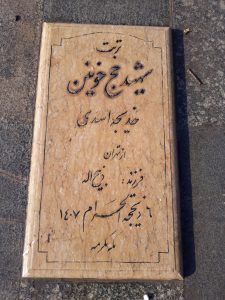 تربت
شهید حج خونین
خدیجه اسدی
از تهران
فرزند: ذبیح اله
۶ ذیحجة الحرام ۱۴۰۷
مکه مکرمه